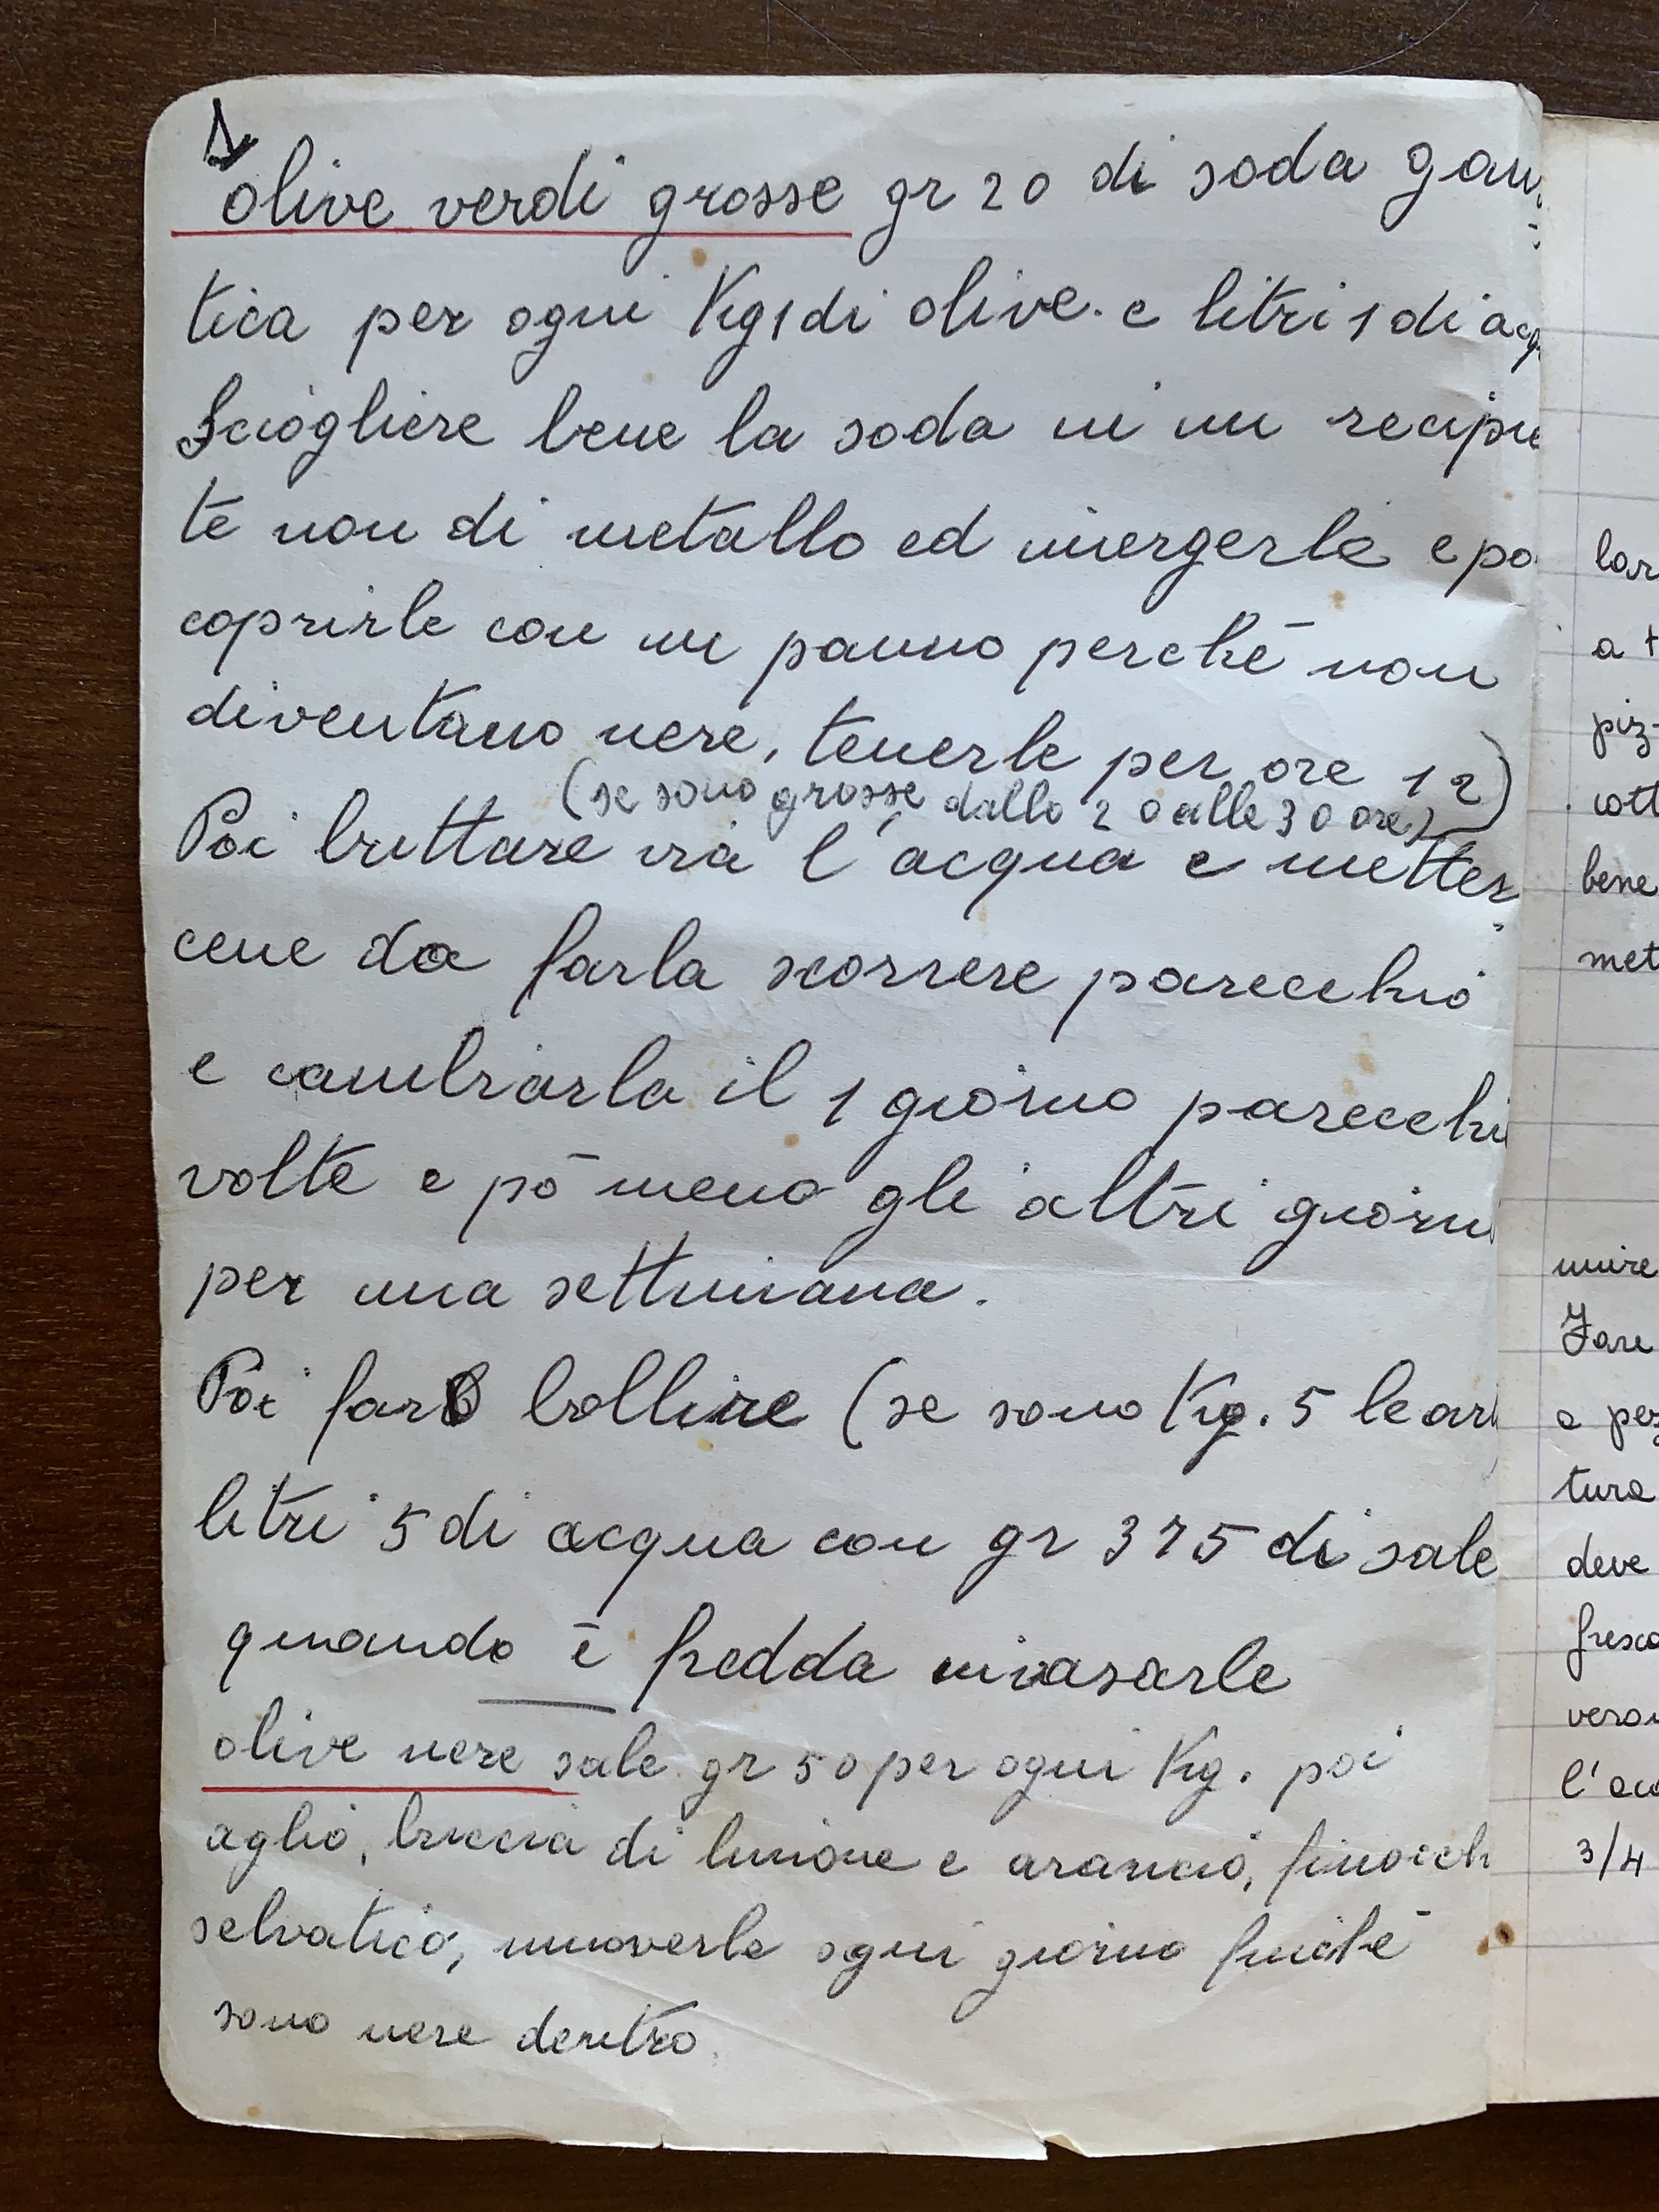 1
olive verdi grosse gr 20 di soda gaus
tica per ogni Kg 1 di olive. e litri 1 di acq
Sciogliere bene la soda in un recipie
te non di metallo ed imergerle e po
coprirle con un panno perchè non
diventano nere, tenerle per ore 12)
(se sono grosse dallo 20 alle 30 ore)
Poi buttare via l'acqua e metter
cene da farla scorrere parecchio
e cambiarla il 1 giorno parecchi
volte e pò meno gli altri giorni
per una settimana.
Poi far bollire (se sono Kg. 5 le
litri 5 di acqua con gr 375 di sale
quando è fredda invasarle
olive nere sale gr 50 per ogni Kg. poi
aglio, buccia di limone e arancio, finocch
selvatico, muoverle ogni giorno finchè
sono nere dentro.
lar
a t
piz-
cott
bene
met
unire
Fare
a pez
tura
deve
fresco
l'ac
3/4